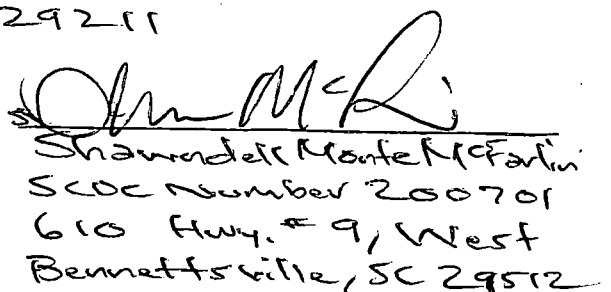 29211
s/
Shawndell Monte McFarlin
SCDC Number 200701
610 Hwy. # 9, West
Bennettsville, SC 29512